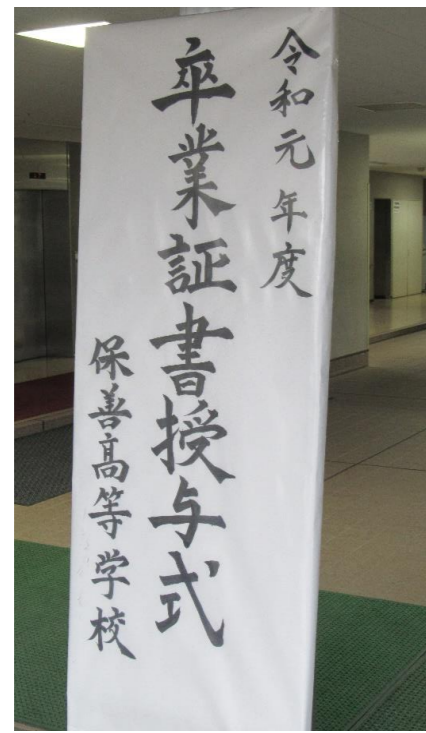 令和元年度
卒業証書授与式
保善高等学校